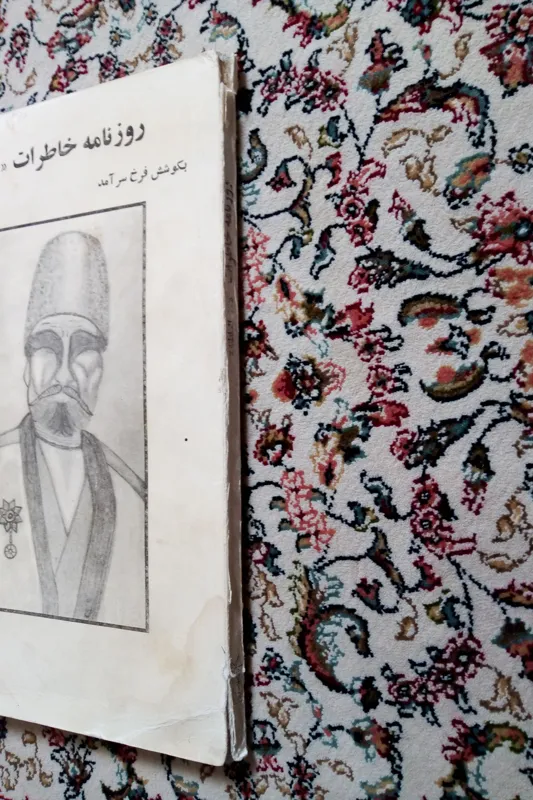 روزنامه خاطرات «
بکوشش فرخ سرآمد
روزنامه خاطرات